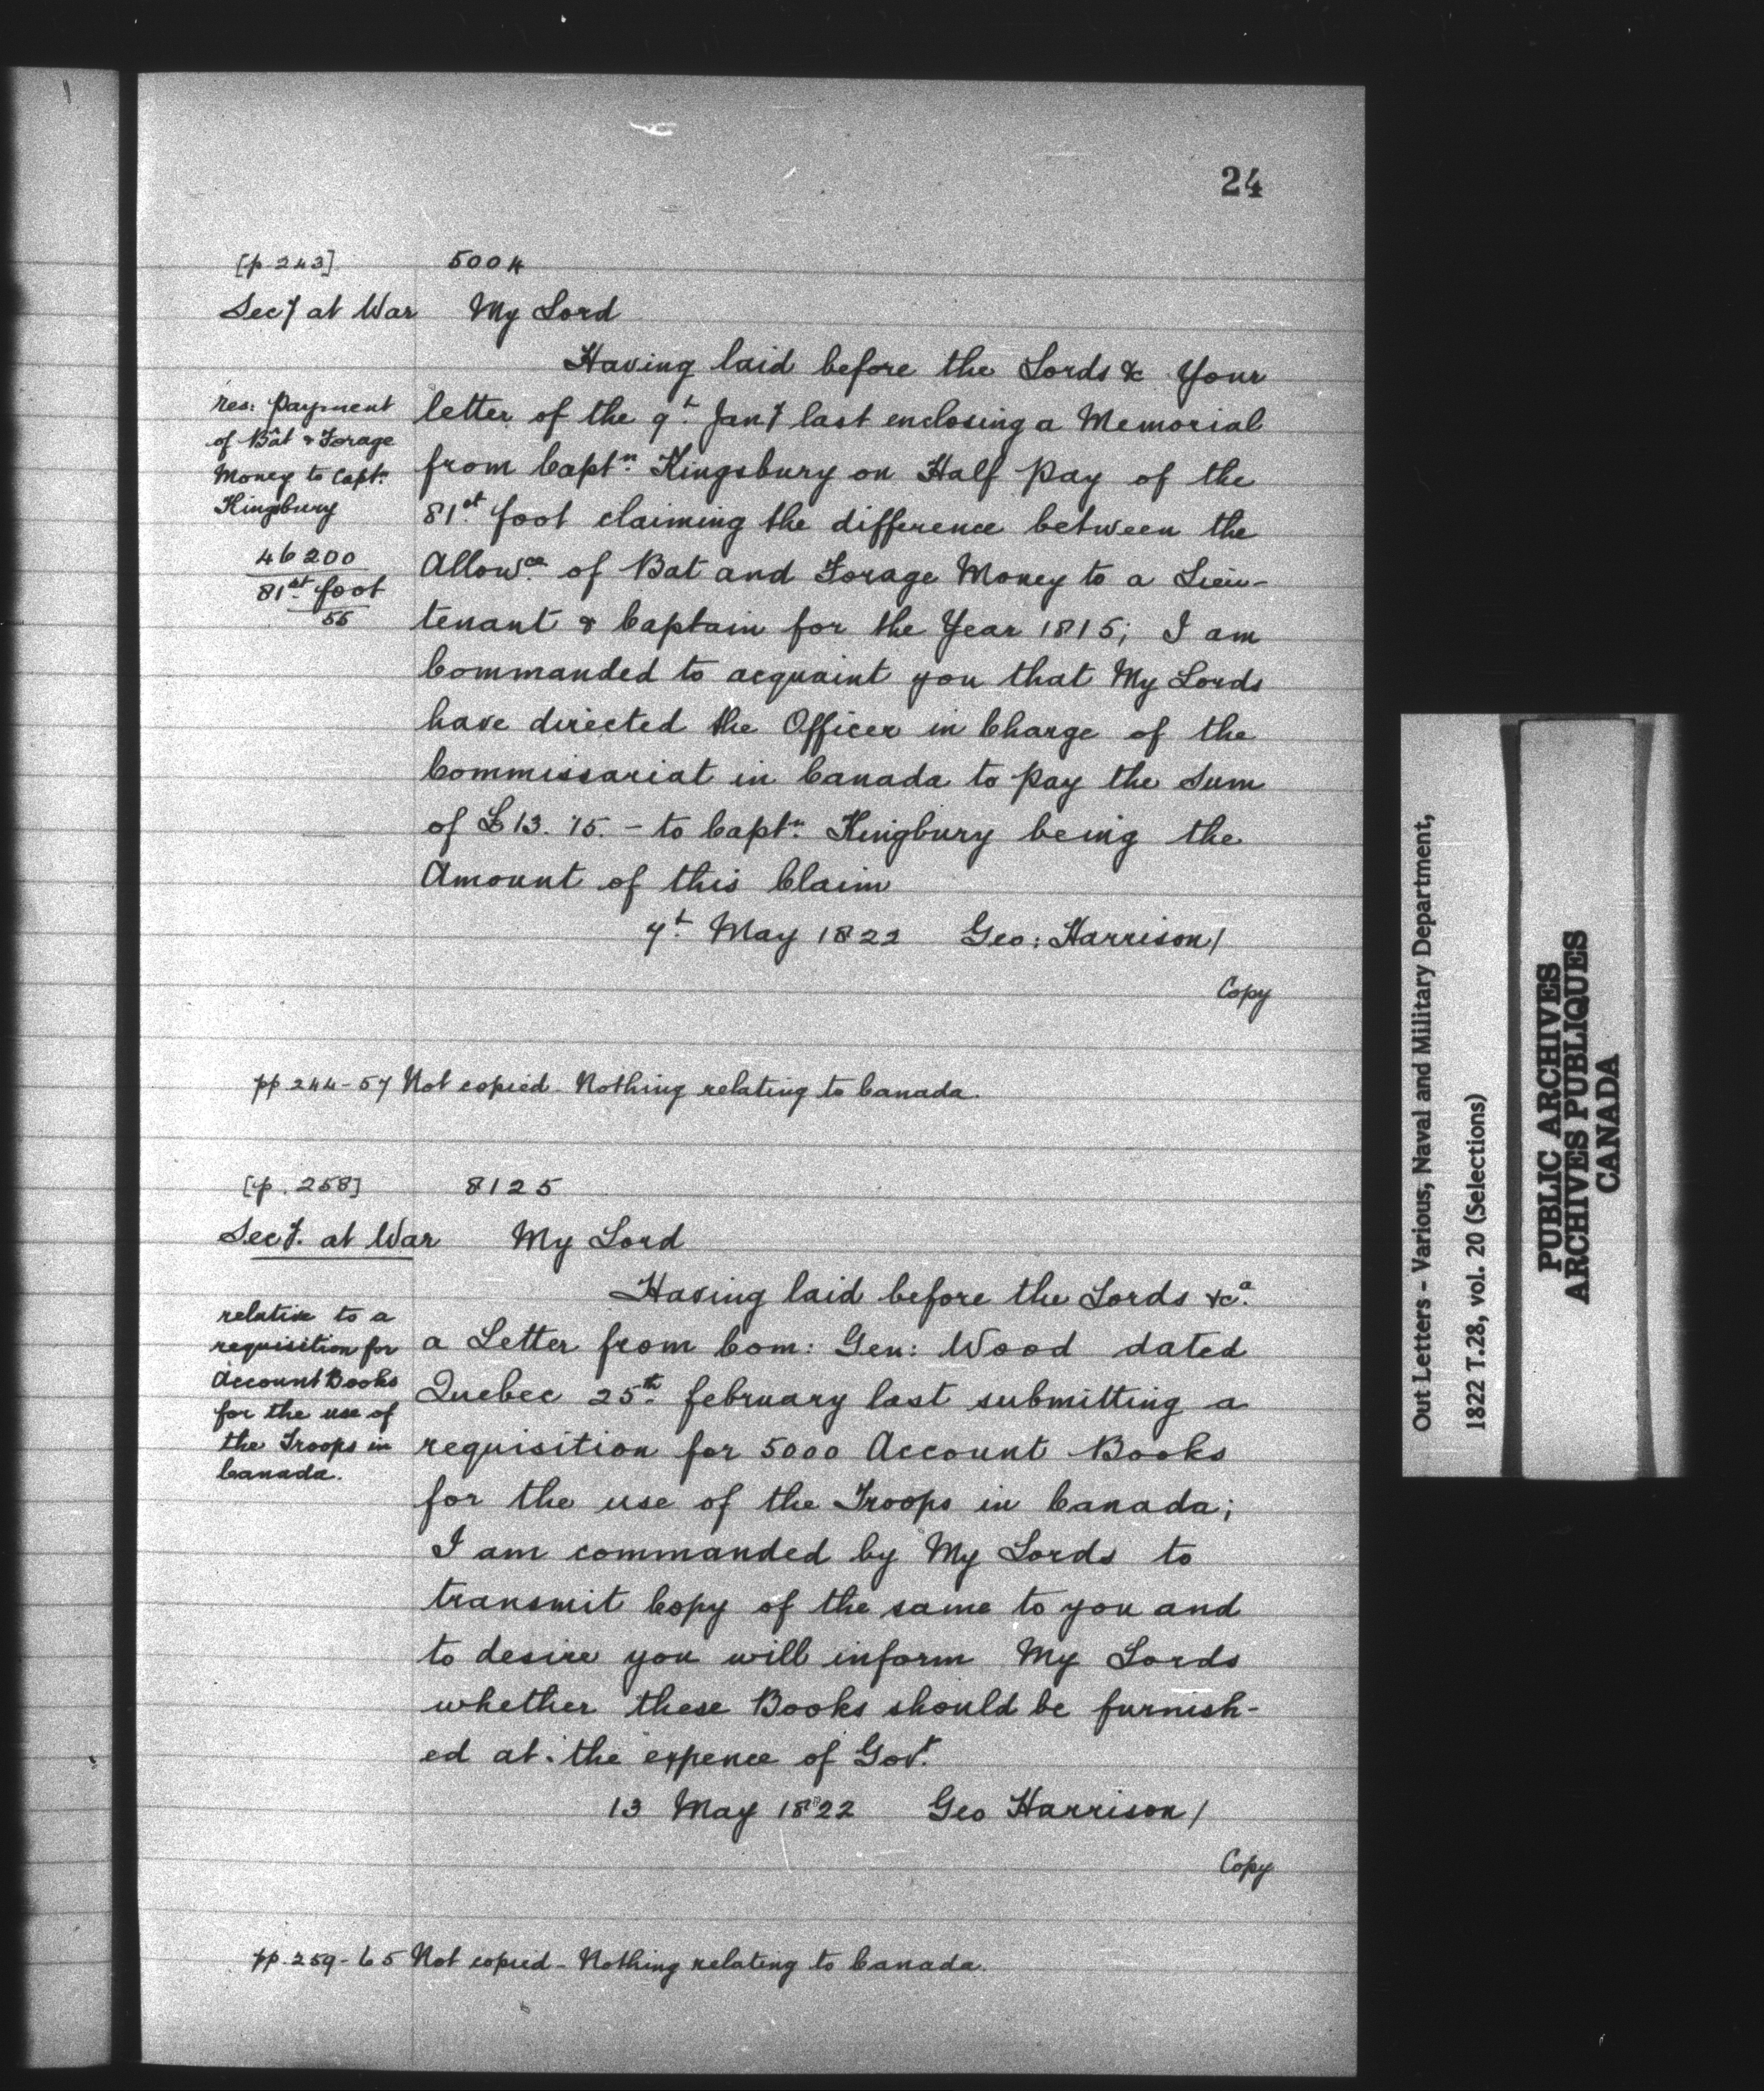 24
[p 243] 5004
Secy at War My Lord
Having laid before the Lords &c Your
res: Payment
of Bât & Forage
Money to Captn.
Kingsbury
46200
81st foot
55
letter of the 9t. Jany last enclosing a Memorial
from Captn. Kingsbury on Half Pay of the
81st. foot claiming the difference between the
Allowce. of Bat and Forage Money to a Lieu-
tenant & Captain for the Year 1815; I am
Commanded to acquaint you that My Lords
have directed the Officer in Charge of the
Commissariat in Canada to Pay the Sum
of £13. 15. - to Captn. Kingbury being the
Amount of this Claim
7t. May 1822 Geo: Harrison/
Copy
pp 244-57 Not copied. Nothing relating to Canada.
[p. 258] 8125
Secy. at War My Lord
Having laid before the Lords &ca.
relative to a
requisition for
Account Books
for the use of
the Troops in
Canada.
a Letter from Com: Gen: Wood dated
Quebec 25th. february last submitting a
requisition for 5000 Account Books
for the use of the Troops in Canada;
I am commanded by My Lords to
transmit Copy of the same to you and
to desire you will inform My Lords
whether these Books should be furnish-
ed at the expence of Govt.
13 May 1822 Geo Harrison/
Copy
pp. 259-65 Not copied - Nothing relating to Canada.
Out Letters - Various, Naval and Military Department,
1822 T.28, vol. 20 (Selections)
PUBLIC ARCHIVES
ARCHIVES PUBLIQUES
CANADA